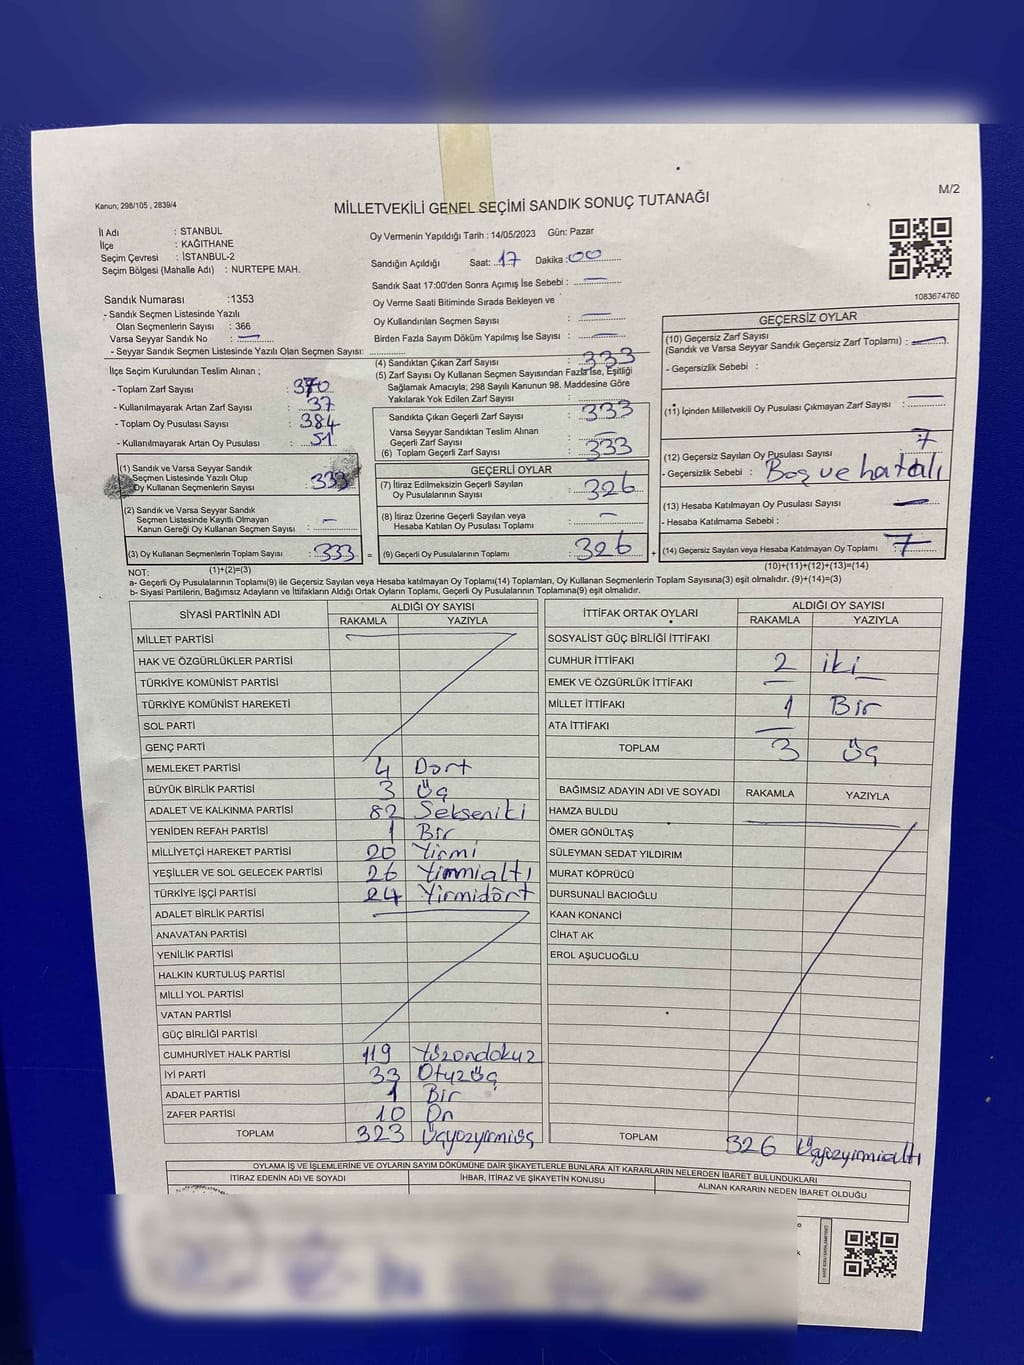 Kanun; 298/105 , 2839/4
M/2
MİLLETVEKİLİ GENEL SEÇİMİ SANDIK SONUÇ TUTANAĞI
İl Adı : STANBUL
İlçe : KAĞITHANE
Seçim Çevresi : İSTANBUL-2
Seçim Bölgesi (Mahalle Adı) : NURTEPE MAH.
Sandık Numarası :1353
- Sandık Seçmen Listesinde Yazılı
Olan Seçmenlerin Sayısı : 366
Varsa Seyyar Sandık No : —
- Seyyar Sandık Seçmen Listesinde Yazılı Olan Seçmen Sayısı:
Oy Vermenin Yapıldığı Tarih : 14/05/2023 Gün: Pazar
Sandığın Açıldığı Saat: 17 Dakika :00
Sandık Saat 17:00'den Sonra Açımış İse Sebebi : —
Oy Verme Saati Bitiminde Sırada Bekleyen ve
Oy Kullandırılan Seçmen Sayısı : —
Birden Fazla Sayım Döküm Yapılmış İse Sayısı : —
1083674760
İlçe Seçim Kurulundan Teslim Alınan ;
- Toplam Zarf Sayısı : 370
- Kullanılmayarak Artan Zarf Sayısı : 37
- Toplam Oy Pusulası Sayısı : 384
- Kullanılmayarak Artan Oy Pusulası : 51
(1) Sandık ve Varsa Seyyar Sandık
Seçmen Listesinde Yazılı Olup
Oy Kullanan Seçmenlerin Sayısı : 333
(2) Sandık ve Varsa Seyyar Sandık
Seçmen Listesinde Kayıtlı Olmayan
Kanun Gereği Oy Kullanan Seçmen Sayısı : —
(3) Oy Kullanan Seçmenlerin Toplam Sayısı : 333 =
(1)+(2)=(3)
(4) Sandıktan Çıkan Zarf Sayısı : 333
(5) Zarf Sayısı Oy Kullanan Seçmen Sayısından Fazla İse, Eşitliği
Sağlamak Amacıyla; 298 Sayılı Kanunun 98. Maddesine Göre
Yakılarak Yok Edilen Zarf Sayısı :
Sandıkta Çıkan Geçerli Zarf Sayısı : 333
Varsa Seyyar Sandıktan Teslim Alınan
Geçerli Zarf Sayısı : —
(6) Toplam Geçerli Zarf Sayısı : 333
GEÇERLİ OYLAR
(7) İtiraz Edilmeksizin Geçerli Sayılan
Oy Pusulalarının Sayısı : 326
(8) İtiraz Üzerine Geçerli Sayılan veya
Hesaba Katılan Oy Pusulası Toplamı : —
(9) Geçerli Oy Pusulalarının Toplamı : 326 +
GEÇERSİZ OYLAR
(10) Geçersiz Zarf Sayısı
(Sandık ve Varsa Seyyar Sandık Geçersiz Zarf Toplamı) : —
- Geçersizlik Sebebi :
(11) İçinden Milletvekili Oy Pusulası Çıkmayan Zarf Sayısı : —
(12) Geçersiz Sayılan Oy Pusulası Sayısı : 7
- Geçersizlik Sebebi : Boş ve hatalı
(13) Hesaba Katılmayan Oy Pusulası Sayısı : —
- Hesaba Katılmama Sebebi :
(14) Geçersiz Sayılan veya Hesaba Katılmayan Oy Toplamı : 7
(10)+(11)+(12)+(13)=(14)
NOT:
a- Geçerli Oy Pusulalarının Toplamı(9) ile Geçersiz Sayılan veya Hesaba katılmayan Oy Toplamı(14) Toplamları, Oy Kullanan Seçmenlerin Toplam Sayısına(3) eşit olmalıdır. (9)+(14)=(3)
b- Siyasi Partilerin, Bağımsız Adayların ve İttifakların Aldığı Ortak Oyların Toplamı, Geçerli Oy Pusulalarının Toplamına(9) eşit olmalıdır.
SİYASİ PARTİNİN ADI ALDIĞI OY SAYISI
RAKAMLA YAZIYLA
MİLLET PARTİSİ
HAK VE ÖZGÜRLÜKLER PARTİSİ
TÜRKİYE KOMÜNİST PARTİSİ
TÜRKİYE KOMÜNİST HAREKETİ
SOL PARTİ
GENÇ PARTİ
MEMLEKET PARTİSİ 4 Dört
BÜYÜK BİRLİK PARTİSİ 3 Üç
ADALET VE KALKINMA PARTİSİ 82 Sekseniki
YENİDEN REFAH PARTİSİ 1 Bir
MİLLİYETÇİ HAREKET PARTİSİ 20 Yirmi
YEŞİLLER VE SOL GELECEK PARTİSİ 26 Yirmialtı
TÜRKİYE İŞÇİ PARTİSİ 24 Yirmidört
ADALET BİRLİK PARTİSİ
ANAVATAN PARTİSİ
YENİLİK PARTİSİ
HALKIN KURTULUŞ PARTİSİ
MİLLİ YOL PARTİSİ
VATAN PARTİSİ
GÜÇ BİRLİĞİ PARTİSİ
CUMHURİYET HALK PARTİSİ 119 Yüzondokuz
İYİ PARTİ 33 Otuzüç
ADALET PARTİSİ 1 Bir
ZAFER PARTİSİ 10 On
TOPLAM 323 Üçyüzyirmiüç
İTTİFAK ORTAK OYLARI ALDIĞI OY SAYISI
RAKAMLA YAZIYLA
SOSYALİST GÜÇ BİRLİĞİ İTTİFAKI
CUMHUR İTTİFAKI 2 iki
EMEK VE ÖZGÜRLÜK İTTİFAKI — —
MİLLET İTTİFAKI 1 Bir
ATA İTTİFAKI —
TOPLAM 3 Üç
BAĞIMSIZ ADAYIN ADI VE SOYADI RAKAMLA YAZIYLA
HAMZA BULDU
ÖMER GÖNÜLTAŞ
SÜLEYMAN SEDAT YILDIRIM
MURAT KÖPRÜCÜ
DURSUNALİ BACIOĞLU
KAAN KONANCİ
CİHAT AK
EROL AŞUCUOĞLU
TOPLAM 326 Üçyüzyirmialtı
OYLAMA İŞ VE İŞLEMLERİNE VE OYLARIN SAYIM DÖKÜMÜNE DAİR ŞİKAYETLERLE BUNLARA AİT KARARLARIN NELERDEN İBARET BULUNDUKLARI
İTİRAZ EDENİN ADI VE SOYADI İHBAR, İTİRAZ VE ŞİKAYETİN KONUSU ALINAN KARARIN NEDEN İBARET OLDUĞU